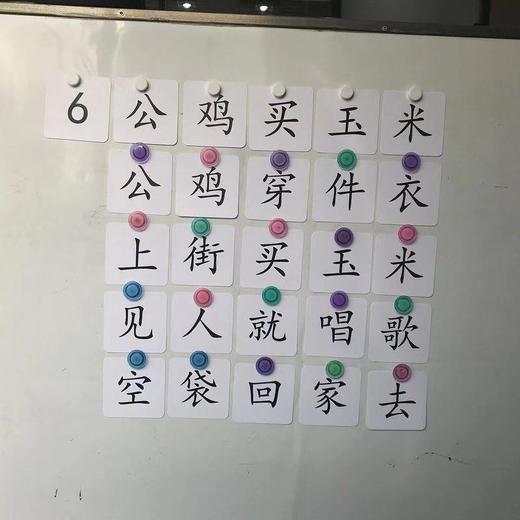 6公鸡买玉米
公鸡穿件衣
上街买玉米
见人就唱歌
空袋回家去